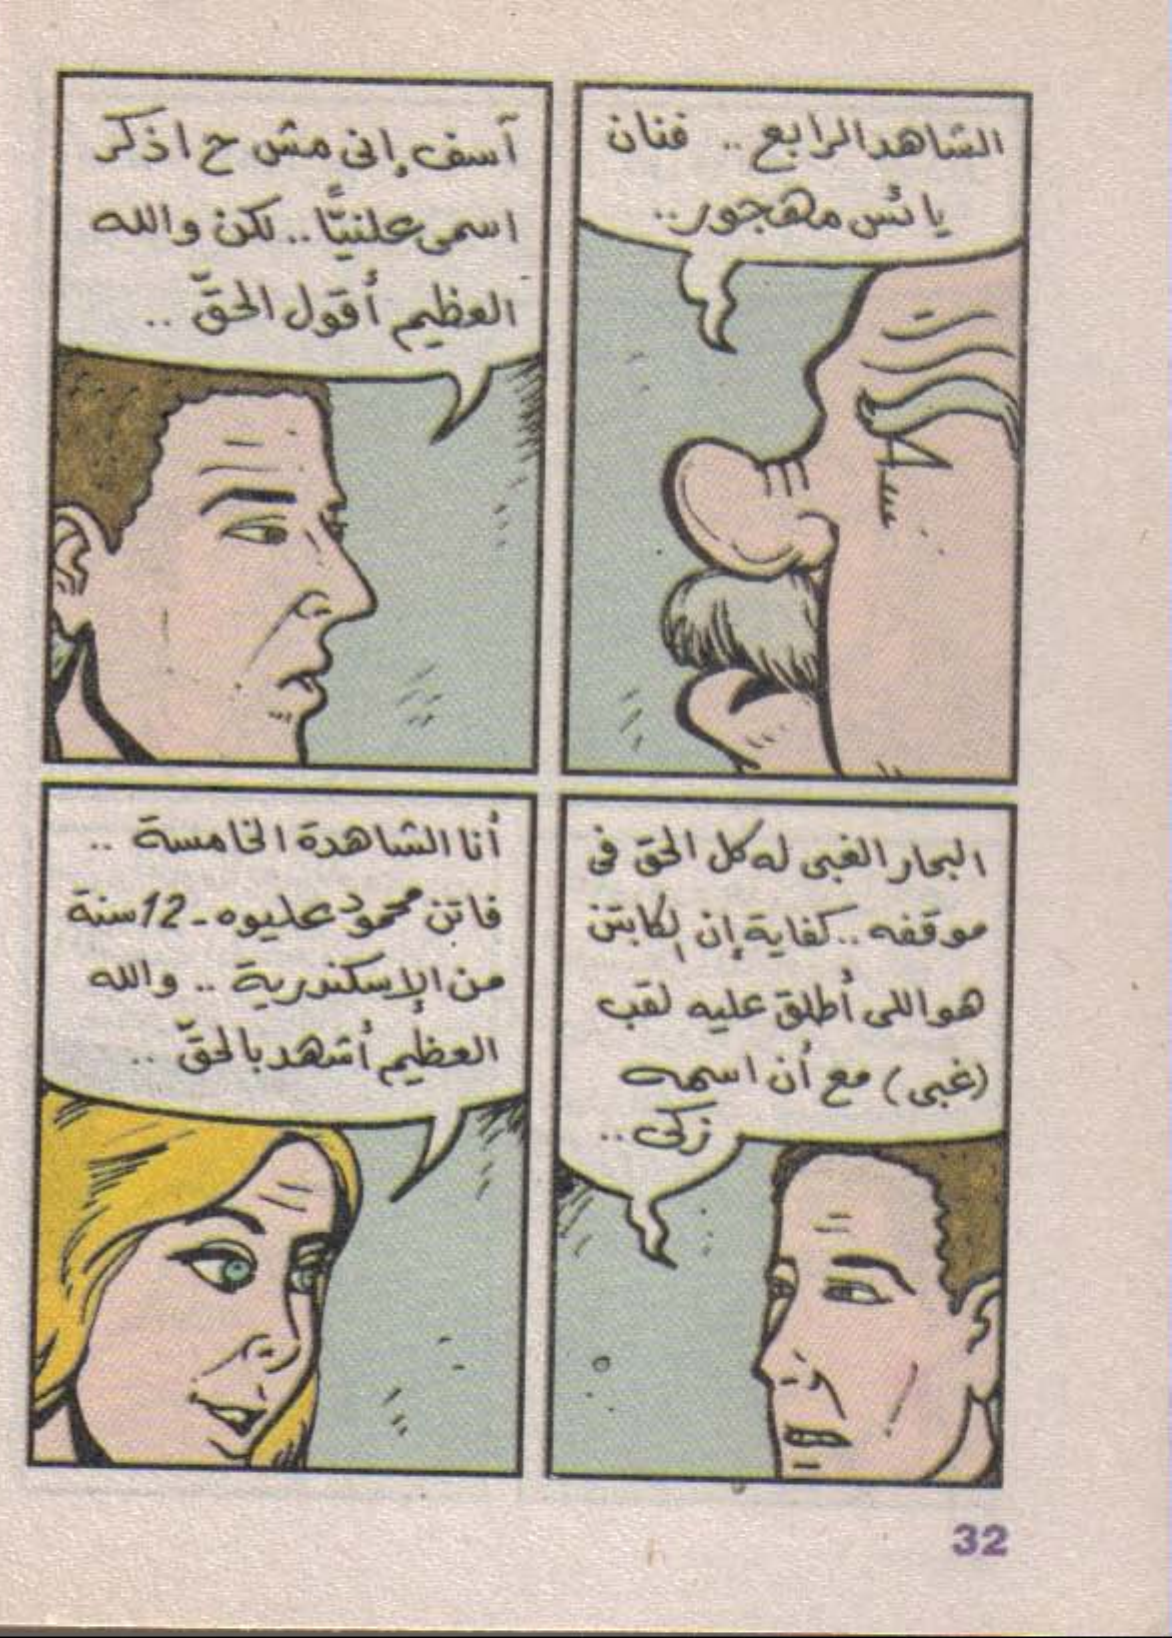 الشاهد الرابع .. فنان
يائس مهجور..
آسف إنى مش ح اذكر
اسمى علنيًّا .. لكن والله
العظيم أقول الحقّ ..
البحار الغبى له كل الحق فى
موقفه .. كفاية إن الكابتن
هو اللى أطلق عليه لقب
(غبى) مع أن اسمه
زكى ..
أنا الشاهدة الخامسة ..
فاتن محمود عليوه - 12 سنة
من الإسكندرية .. والله
العظيم أشهد بالحقّ ..
32